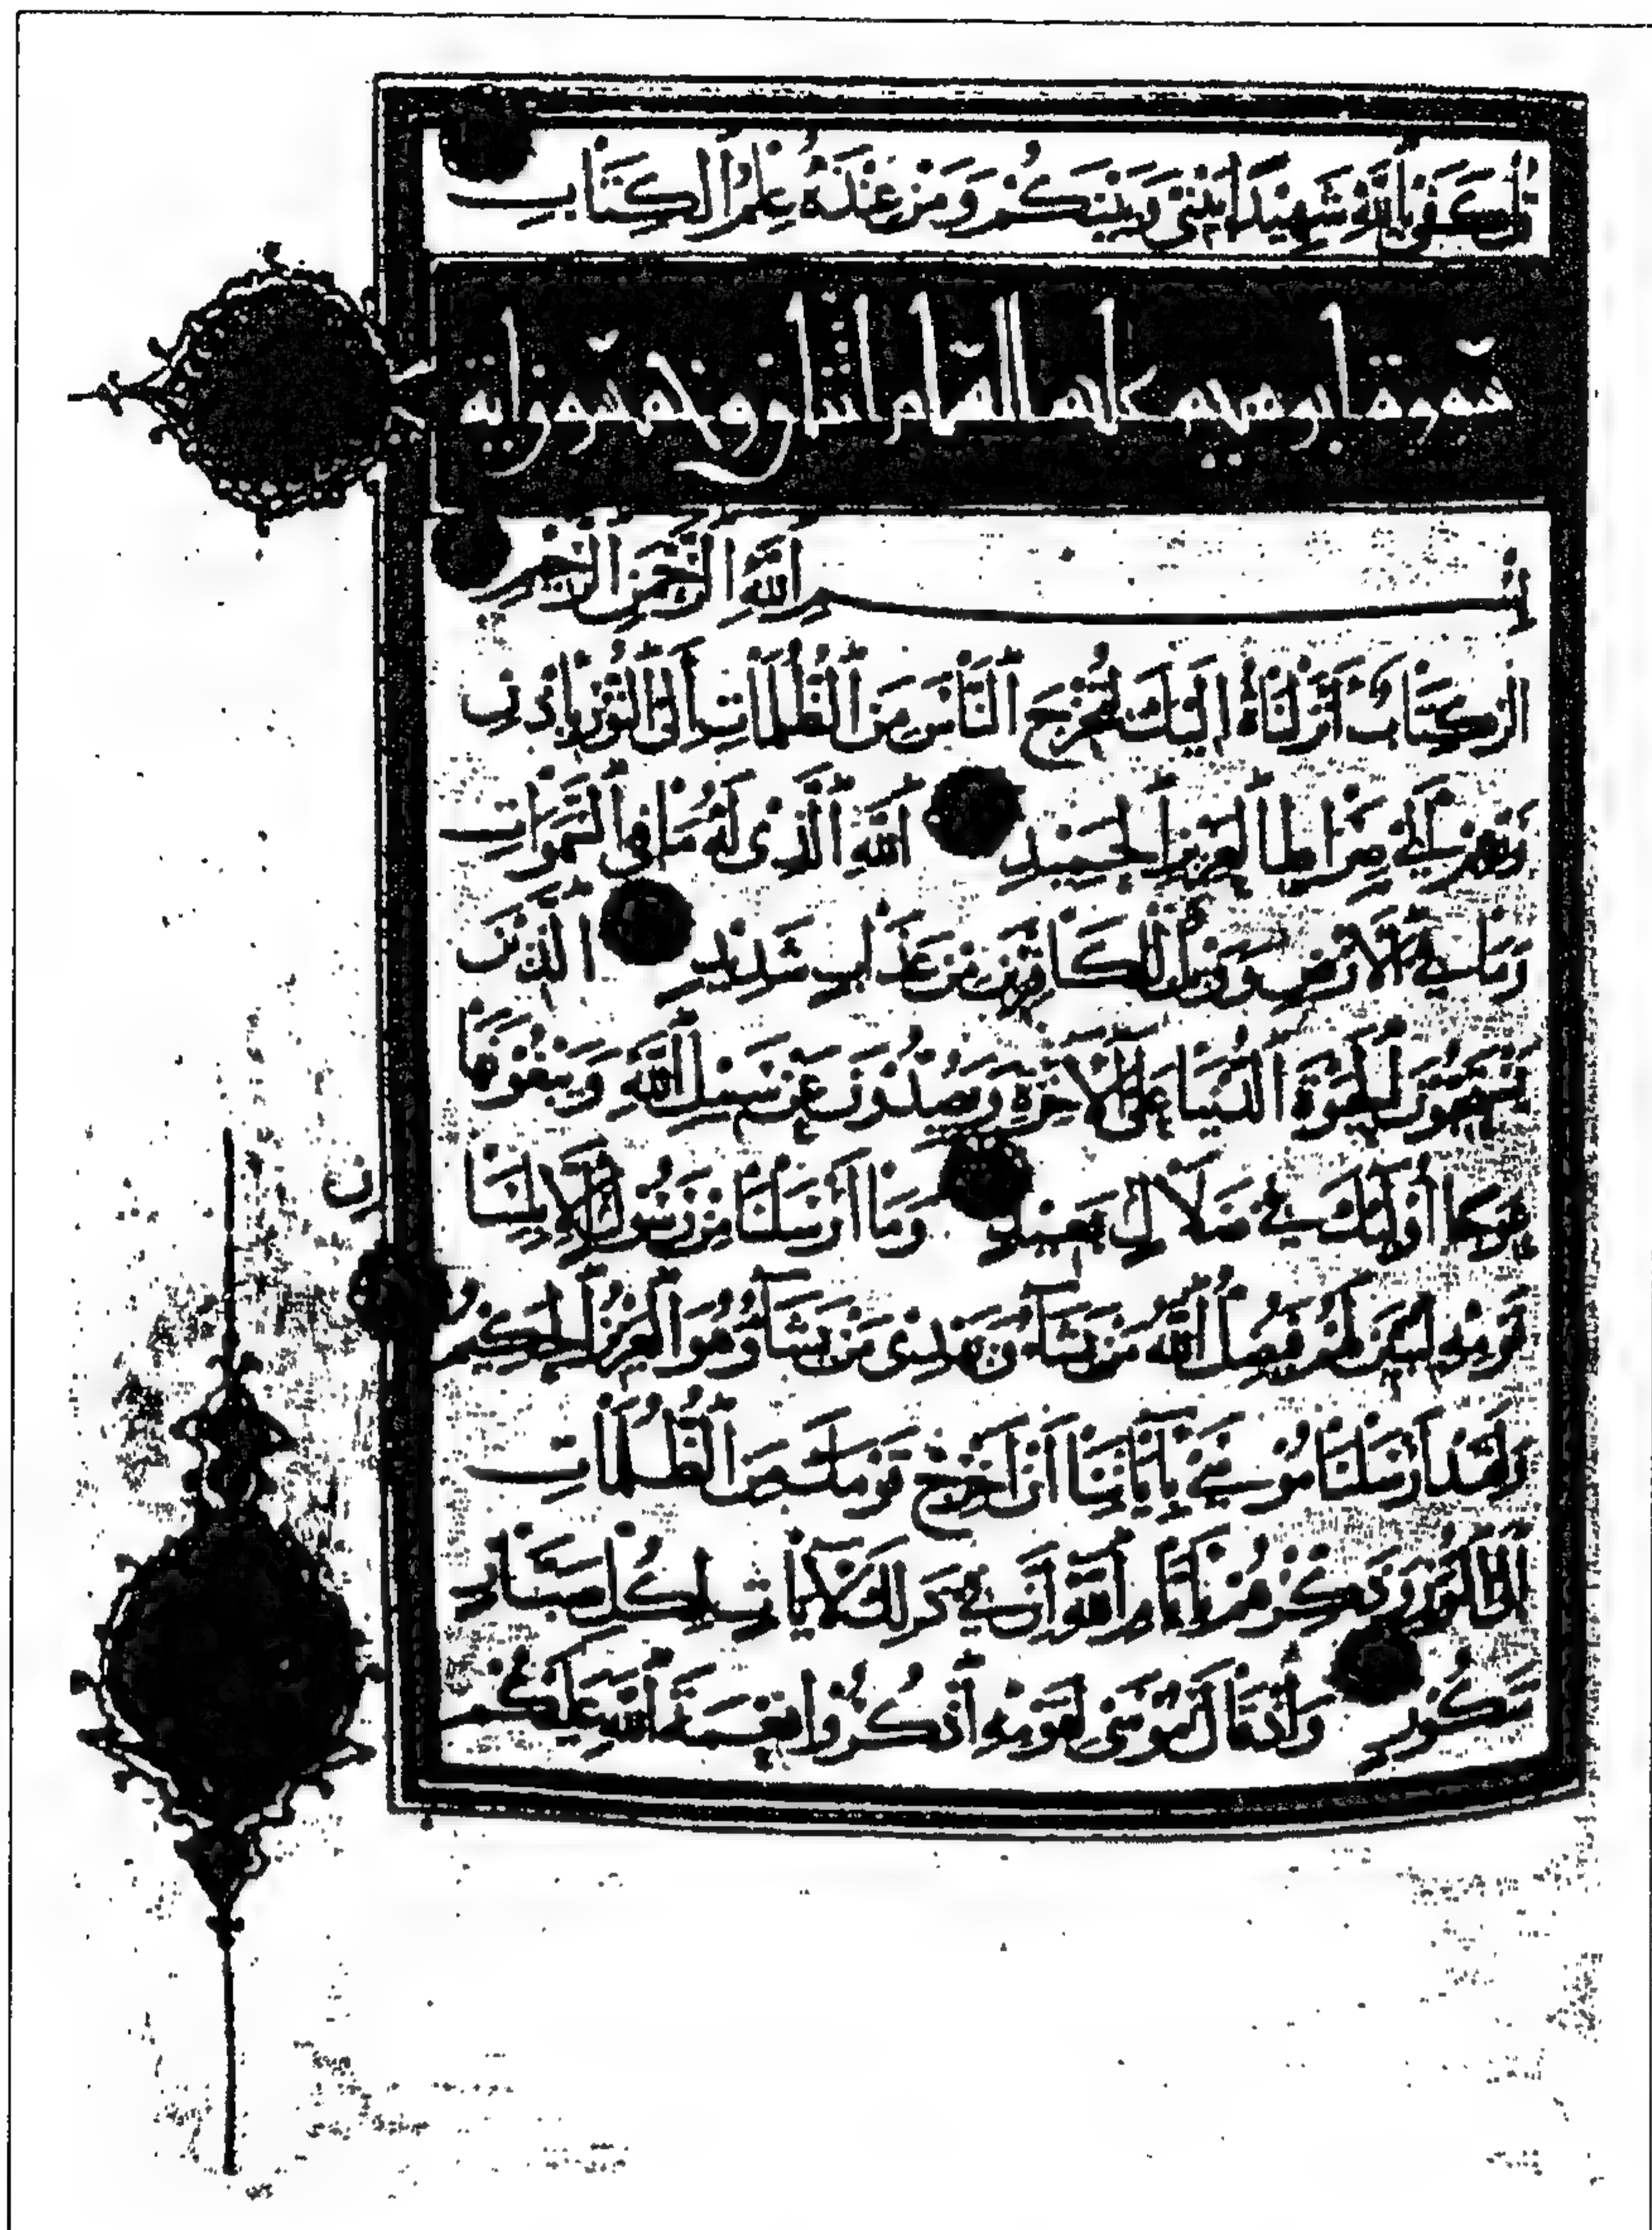 قُلْ كَفَى بِاللَّهِ شَهِيدًا بَيْنِي وَبَيْنَكُمْ وَمَنْ عِنْدَهُ عِلْمُ الْكِتَابِ
سورة ابرهيم عليه السلام اثنتان وخمسون اية
بِسْمِ اللَّهِ الرَّحْمَنِ الرَّحِيمِ
الر كِتَابٌ أَنْزَلْنَاهُ إِلَيْكَ لِتُخْرِجَ النَّاسَ مِنَ الظُّلُمَاتِ إِلَى النُّورِ بِإِذْنِ
رَبِّهِمْ إِلَى صِرَاطِ الْعَزِيزِ الْحَمِيدِ اللَّهِ الَّذِي لَهُ مَا فِي السَّمَوَاتِ
وَمَا فِي الْأَرْضِ وَوَيْلٌ لِلْكَافِرِينَ مِنْ عَذَابٍ شَدِيدٍ الَّذِينَ
يَسْتَحِبُّونَ الْحَيَوةَ الدُّنْيَا عَلَى الْآخِرَةِ وَيَصُدُّونَ عَنْ سَبِيلِ اللَّهِ وَيَبْغُونَهَا
عِوَجًا أُولَئِكَ فِي ضَلَالٍ بَعِيدٍ وَمَا أَرْسَلْنَا مِنْ رَسُولٍ إِلَّا بِلِسَانِ
قَوْمِهِ لِيُبَيِّنَ لَهُمْ فَيُضِلُّ اللَّهُ مَنْ يَشَاءُ وَيَهْدِي مَنْ يَشَاءُ وَهُوَ الْعَزِيزُ الْحَكِيمُ
وَلَقَدْ أَرْسَلْنَا مُوسَى بِآيَاتِنَا أَنْ أَخْرِجْ قَوْمَكَ مِنَ الظُّلُمَاتِ
إِلَى النُّورِ وَذَكِّرْهُمْ بِأَيَّامِ اللَّهِ إِنَّ فِي ذَلِكَ لَآيَاتٍ لِكُلِّ صَبَّارٍ
شَكُورٍ وَإِذْ قَالَ مُوسَى لِقَوْمِهِ اذْكُرُوا نِعْمَةَ اللَّهِ عَلَيْكُمْ